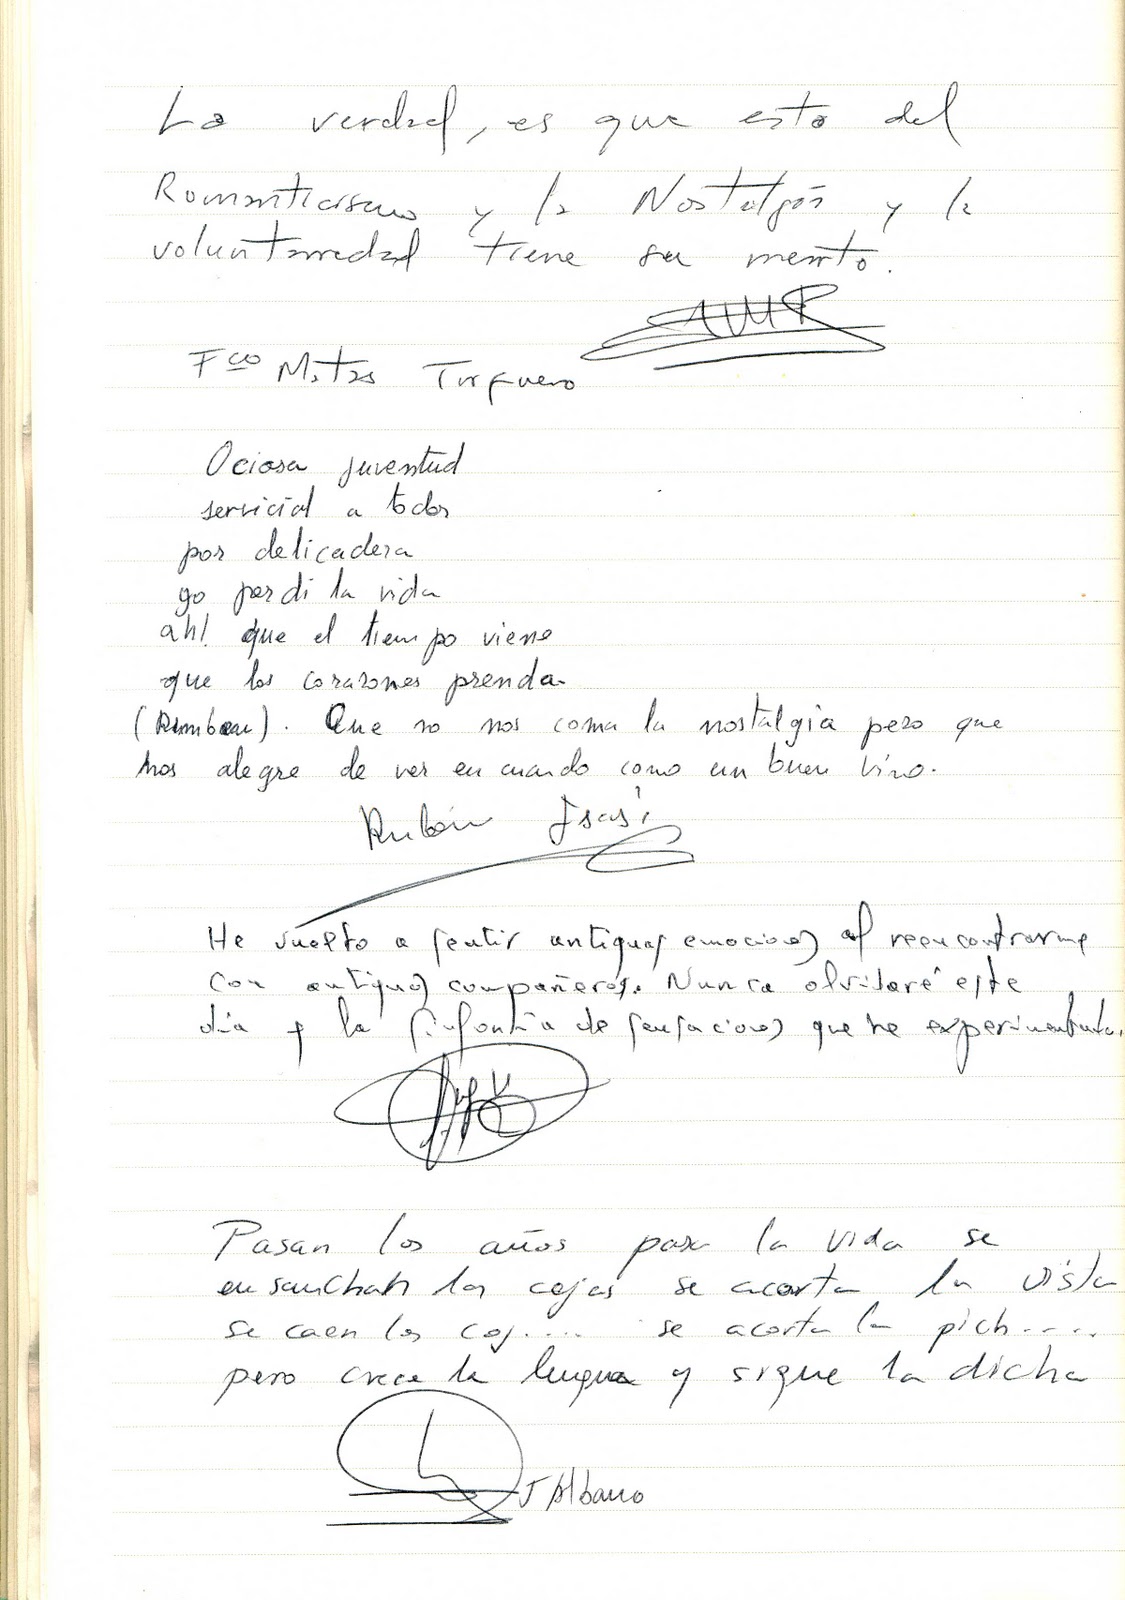 La verdad, es que esto del
Romanticismo y la Nostalgia y la
voluntariedad tiene su merito.
Fco Matas
Ociosa juventud
servicial a todos
por delicadeza
yo perdi la vida
ah! que el tiempo viene
que los corazones prenda
(Rimbau). Que no nos coma la nostalgia pero que
nos alegre de ver en cuando como un buen vino.
Rubén Isasi
He vuelto a sentir antiguas emociones al reencontrarme
con antiguos compañeros. Nunca olvidaré este
día y la sinfonía de sensaciones que he experimentado.
Pasan los años pasa la vida se
ensanchan las cejas se acorta la vista
se caen los coj.... se acorta la pich....
pero crece la lengua y sigue la dicha
J Albano